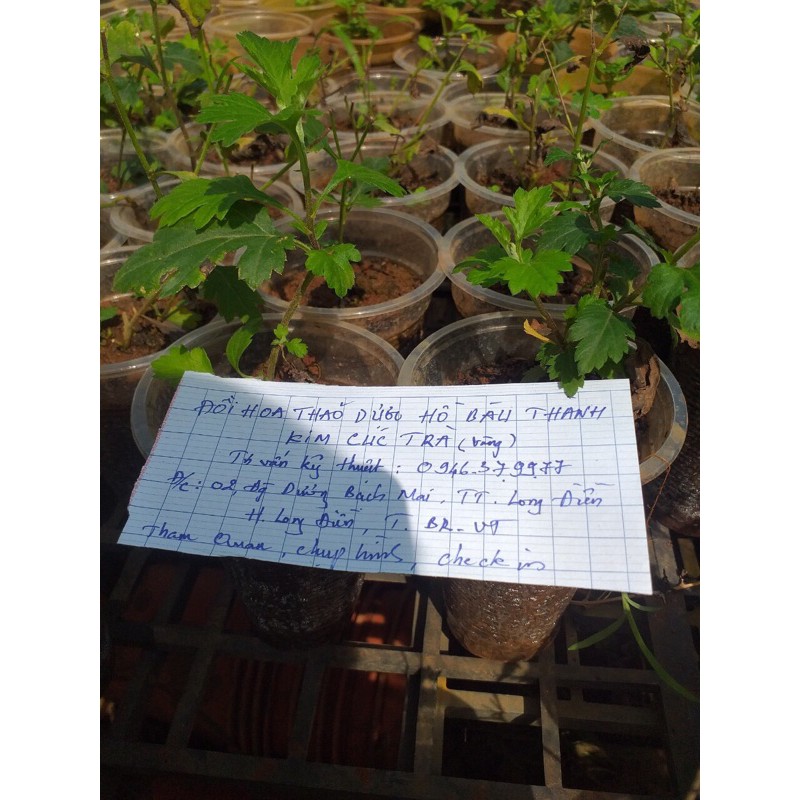 ĐỒI HOA THẢO DƯỢC HỒ BÀU THÀNH
KIM CÚC TRÀ (vàng)
Tư vấn kỹ thuật : 0946.379977
Đ/c : 02, Dương Bạch Mai, TT. Long Điền
H. Long Điền, T. BR-VT
Tham Quan, chụp hình, check in